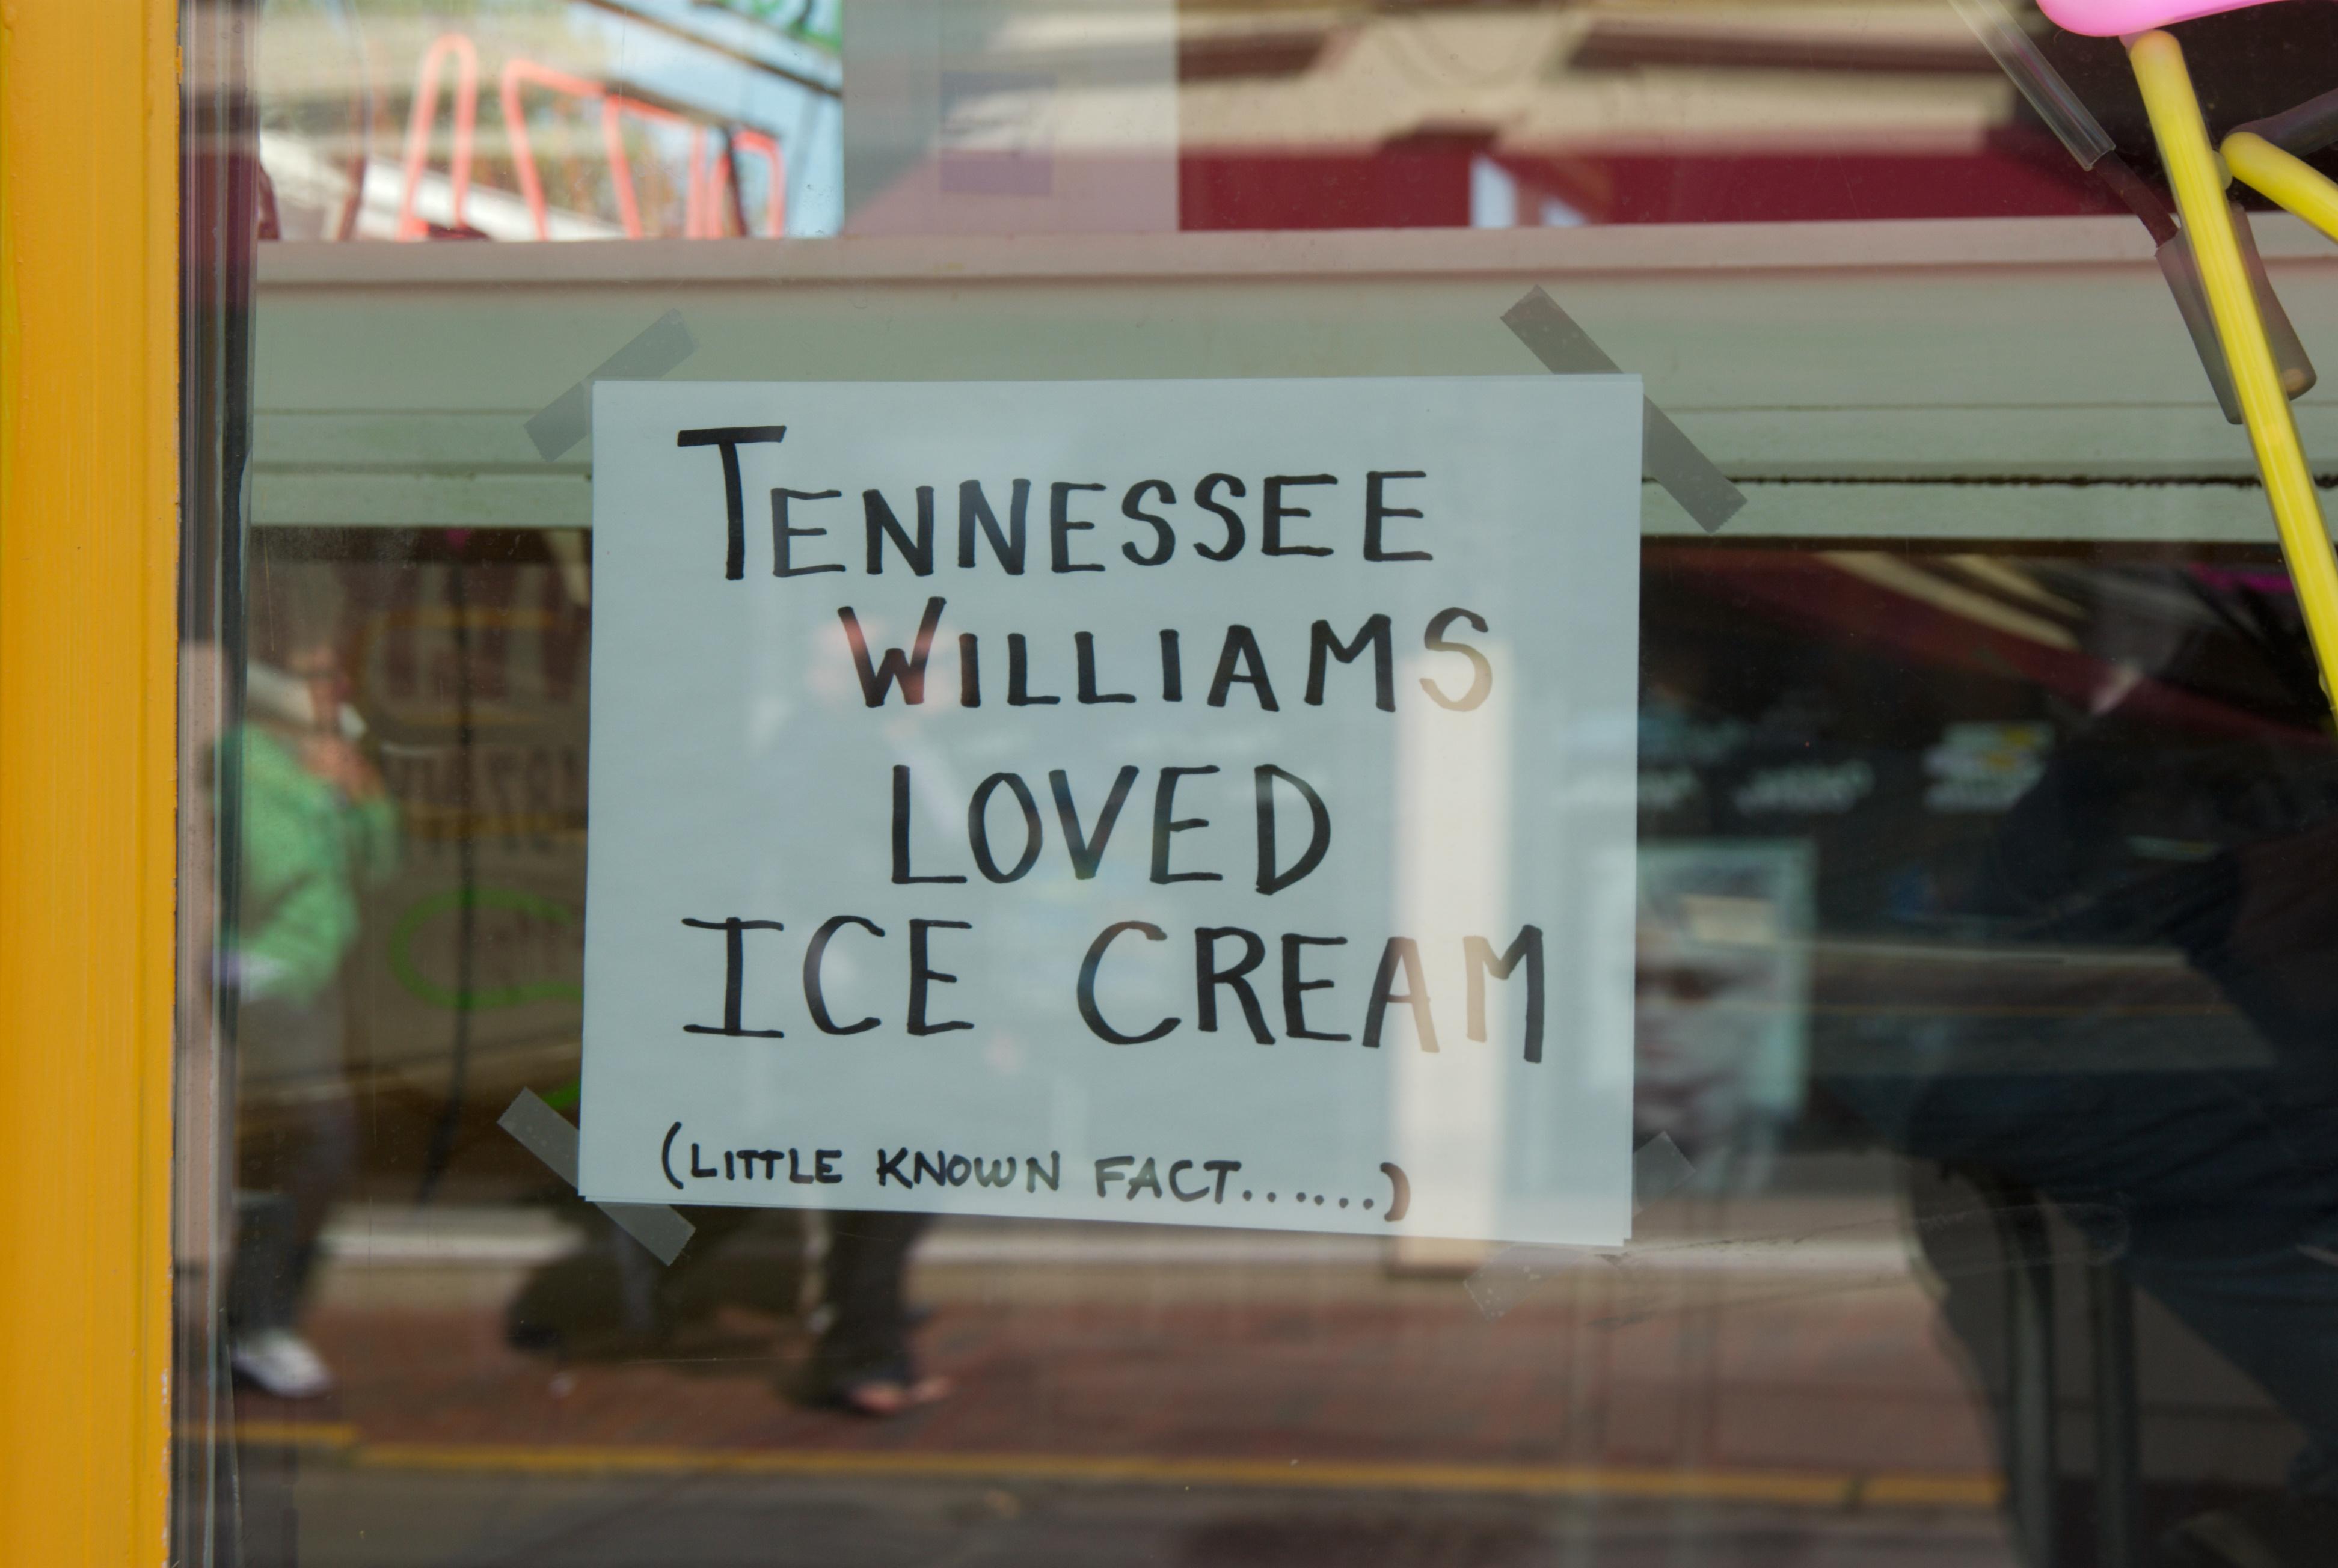 TENNESSEE
WILLIAMS
LOVED
ICE CREAM
(LITTLE KNOWN FACT.......)